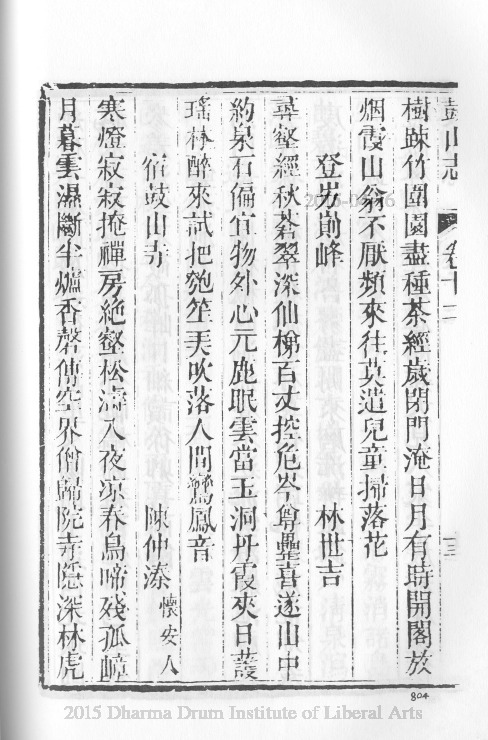 鼓山志 卷十二 十三
樹踈竹圍園盡種茶經歲閉門淹日月有時開閣放
烟霞山翁不厭頻來往莫遣兒童掃落花
登岁崱峰 林世吉
尋壑經秋蒼翠深仙梯百丈控危岑尊罍喜遂山中
約泉石偏宜物外心元鹿眠雲當玉洞丹霞夾日護
瑤林醉來試把匏笙弄吹落人間鸞鳳音
宿鼓山寺 陳仲溱 懷安人
寒燈寂寂掩禪房絶壑松濤入夜凉春鳥啼殘孤嶂
月暮雲濕斷半爐香磬傳空界僧歸院寺隱深林虎
804
2015 Dharma Drum Institute of Liberal Arts